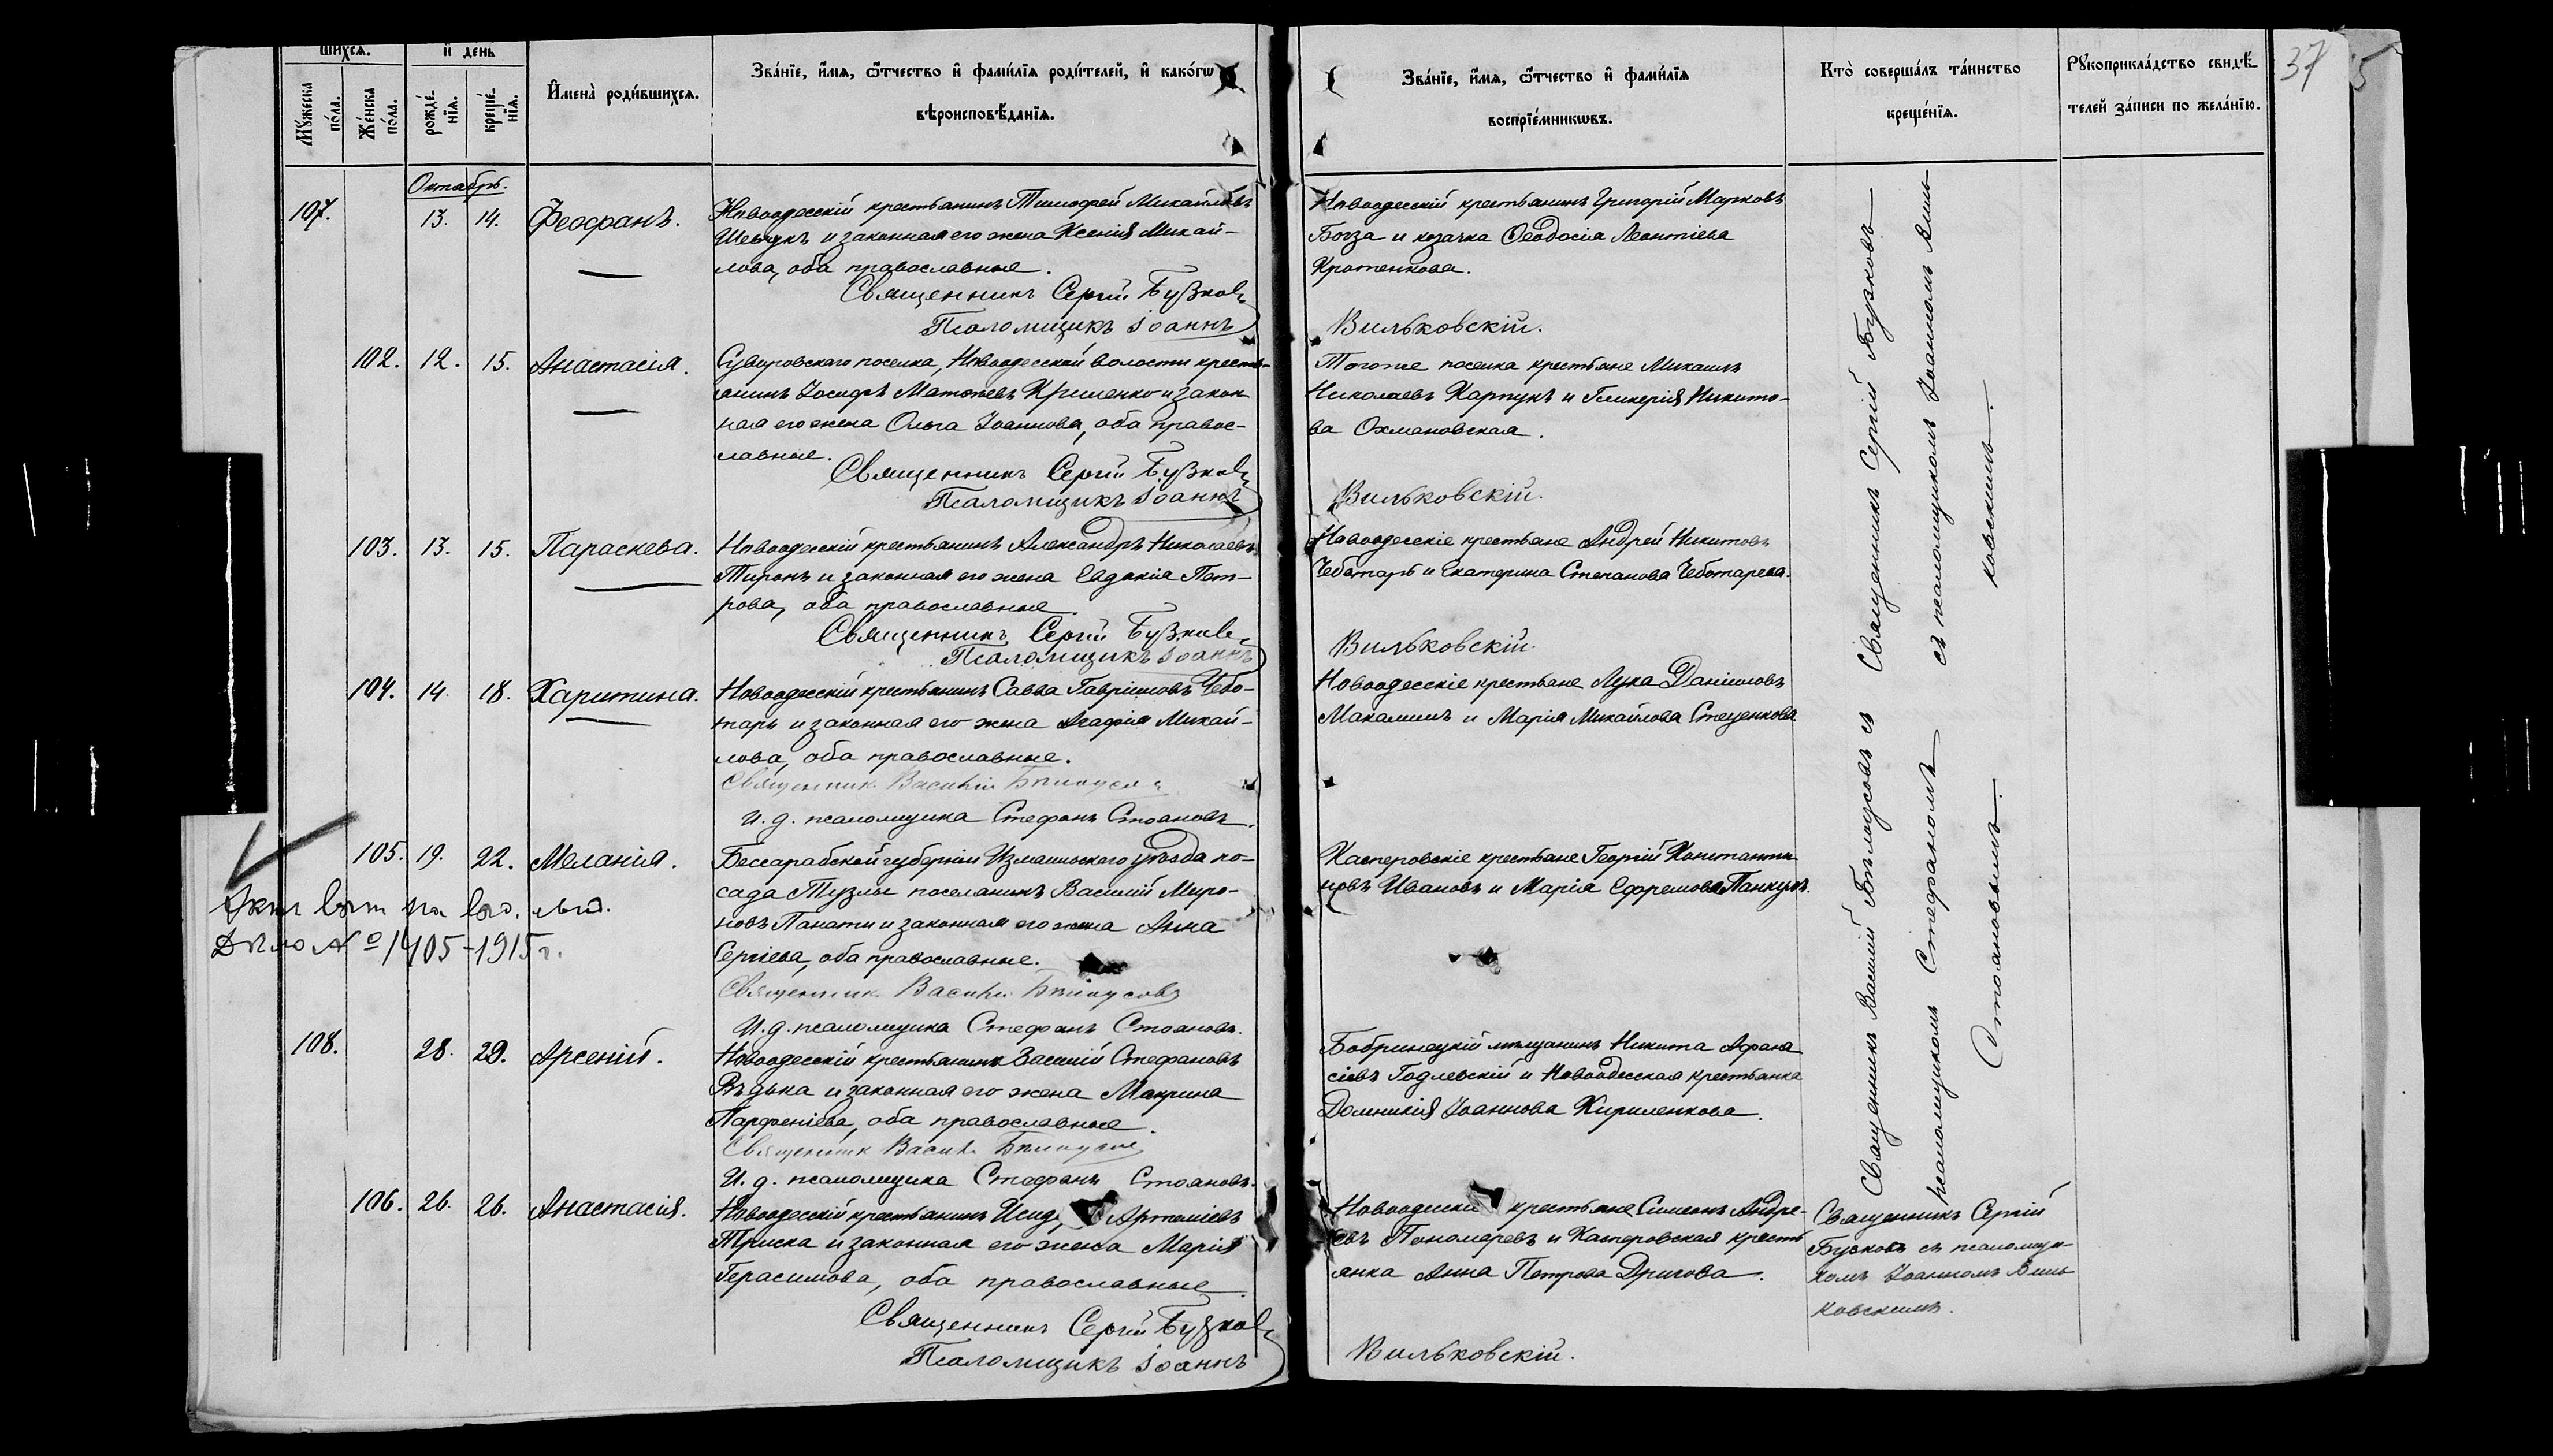 шихся.
и день
Мꙋжеска пола.
Женска пола.
рожденія.
крещенія.
Имена родившихся.
Званіе, имя, ѿтчество и фамилія родителей, и какогѡ
вѣроисповѣданія.
Званіе, имя, ѿтчество и фамилія
воспріемникѡвъ.
Кто совершалъ таинство
крещенія.
Рꙋкоприкладство свидѣ-
телей записи по желанію.
37
5
Октябрь.
107. 13. 14. Феофанъ.
Новоодесскій крестьянинъ Тимофей Михайловъ
Шевчукъ и законная его жена Ксенія Михай-
лова, оба православные.
Священникъ Сергій Бузковъ
Псаломщикъ Іоаннъ
Новоодесскій крестьянинъ Григорій Марковъ
Богза и козачка Ѳеодосія Леонтіева
Кротенкова.
Вильковскій.
102. 12. 15. Анастасія.
Суворовскаго поселка, Новоодесской волости кресть-
янинъ Іосифъ Матѳеевъ Клименко и закон
ная его жена Ольга Іоаннова, оба правос-
лавные.
Священникъ Сергій Бузковъ
Псаломщикъ Іоаннъ
Тогоже поселка крестьяне Михаилъ
Николаевъ Карпукъ и Гликерія Никито-
ва Охмановская.
Вильковскій.
103. 13. 15. Параскева.
Новоодесскій крестьянинъ Александръ Николаевъ
Тиронъ и законная его жена Евдокія Пет-
рова, оба православные.
Священникъ Сергій Бузковъ
Псаломщикъ Іоаннъ
Новоодесскіе крестьяне Андрей Никитовъ
Чеботарь и Екатерина Степанова Чеботарева.
Вильковскій.
104. 14. 18. Харитина.
Новоодесскій крестьянинъ Савва Гавріиловъ Чебо-
тарь и законная его жена Агафія Михай-
лова, оба православные.
Священникъ Василій Бѣлоусовъ
И. д. псаломщика Стефанъ Стояновъ.
Новоодесскіе крестьяне Лука Даніиловъ
и Марія Михайлова Стеценкова
105. 19. 22. Меланія.
Бессарабской губерніи Измаильскаго уѣзда по-
сада Тузлы поселянинъ Василій Миро-
новъ Панати и законная его жена Анна
Сергіева, оба православные.
Священникъ Василій Бѣлоусовъ
И. д. псаломщика Стефанъ Стояновъ.
Касперовскіе крестьяне Георгій Константи-
новъ Ивановъ и Марія Ефремова
Дѣло № 1405-1915 г.
108. 28. 29. Арсеній.
Новоодесскій крестьянинъ Василій Стефановъ
Рѣдька и законная его жена Макрина
Парфеніева, оба православные.
Священникъ Василій Бѣлоусовъ
И. д. псаломщика Стефанъ Стояновъ.
Бобринецкій мѣщанинъ Никита Афана
сіевъ Годлевскій и Новоодесская крестьянка
Домникія Іоаннова Кириленкова.
106. 26. 26. Анастасія.
Новоодесскій крестьянинъ Исид Артеміевъ
Триска и законная его жена Марія
Герасимова, оба православные.
Священникъ Сергій Бузковъ
Псаломщикъ Іоаннъ
Новоодесскіе крестьяне Симеонъ Андре-
евъ Пономаревъ и Касперовская кресть
янка Анна Петрова Дригова.
Вильковскій.
Священникъ Сергій Бузковъ
съ псаломщикомъ Іоанномъ Виль-
ковскимъ.
Священникъ Василій Бѣлоусовъ съ
псаломщикомъ Стефаномъ
Стояновымъ.
Священникъ Сергій
Бузковъ съ псаломщи-
комъ Іоанномъ Виль
ковскимъ.